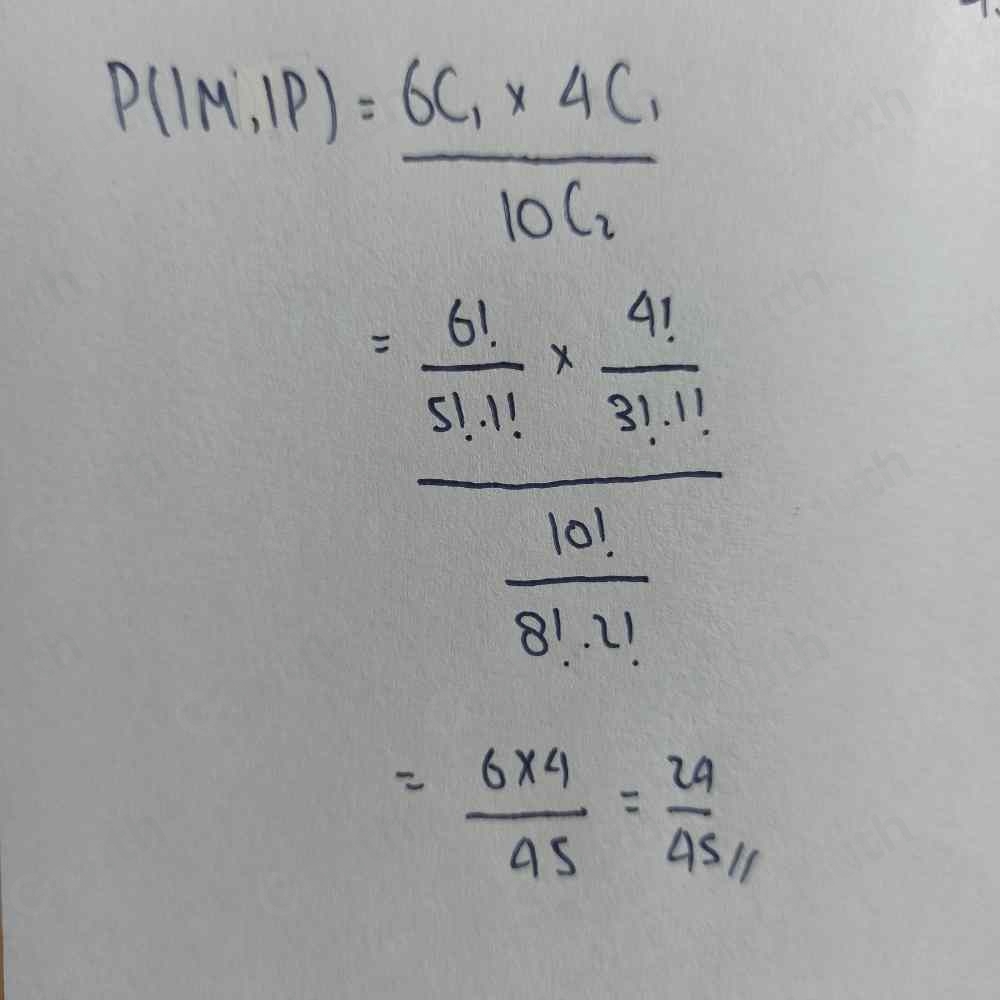 P(1M,1P) = 6C₁ × 4C₁
10C₂
= 6! × 4!
5!.1! 3!.1!
10!
8!.2!
= 6×4 = 24
45 45//